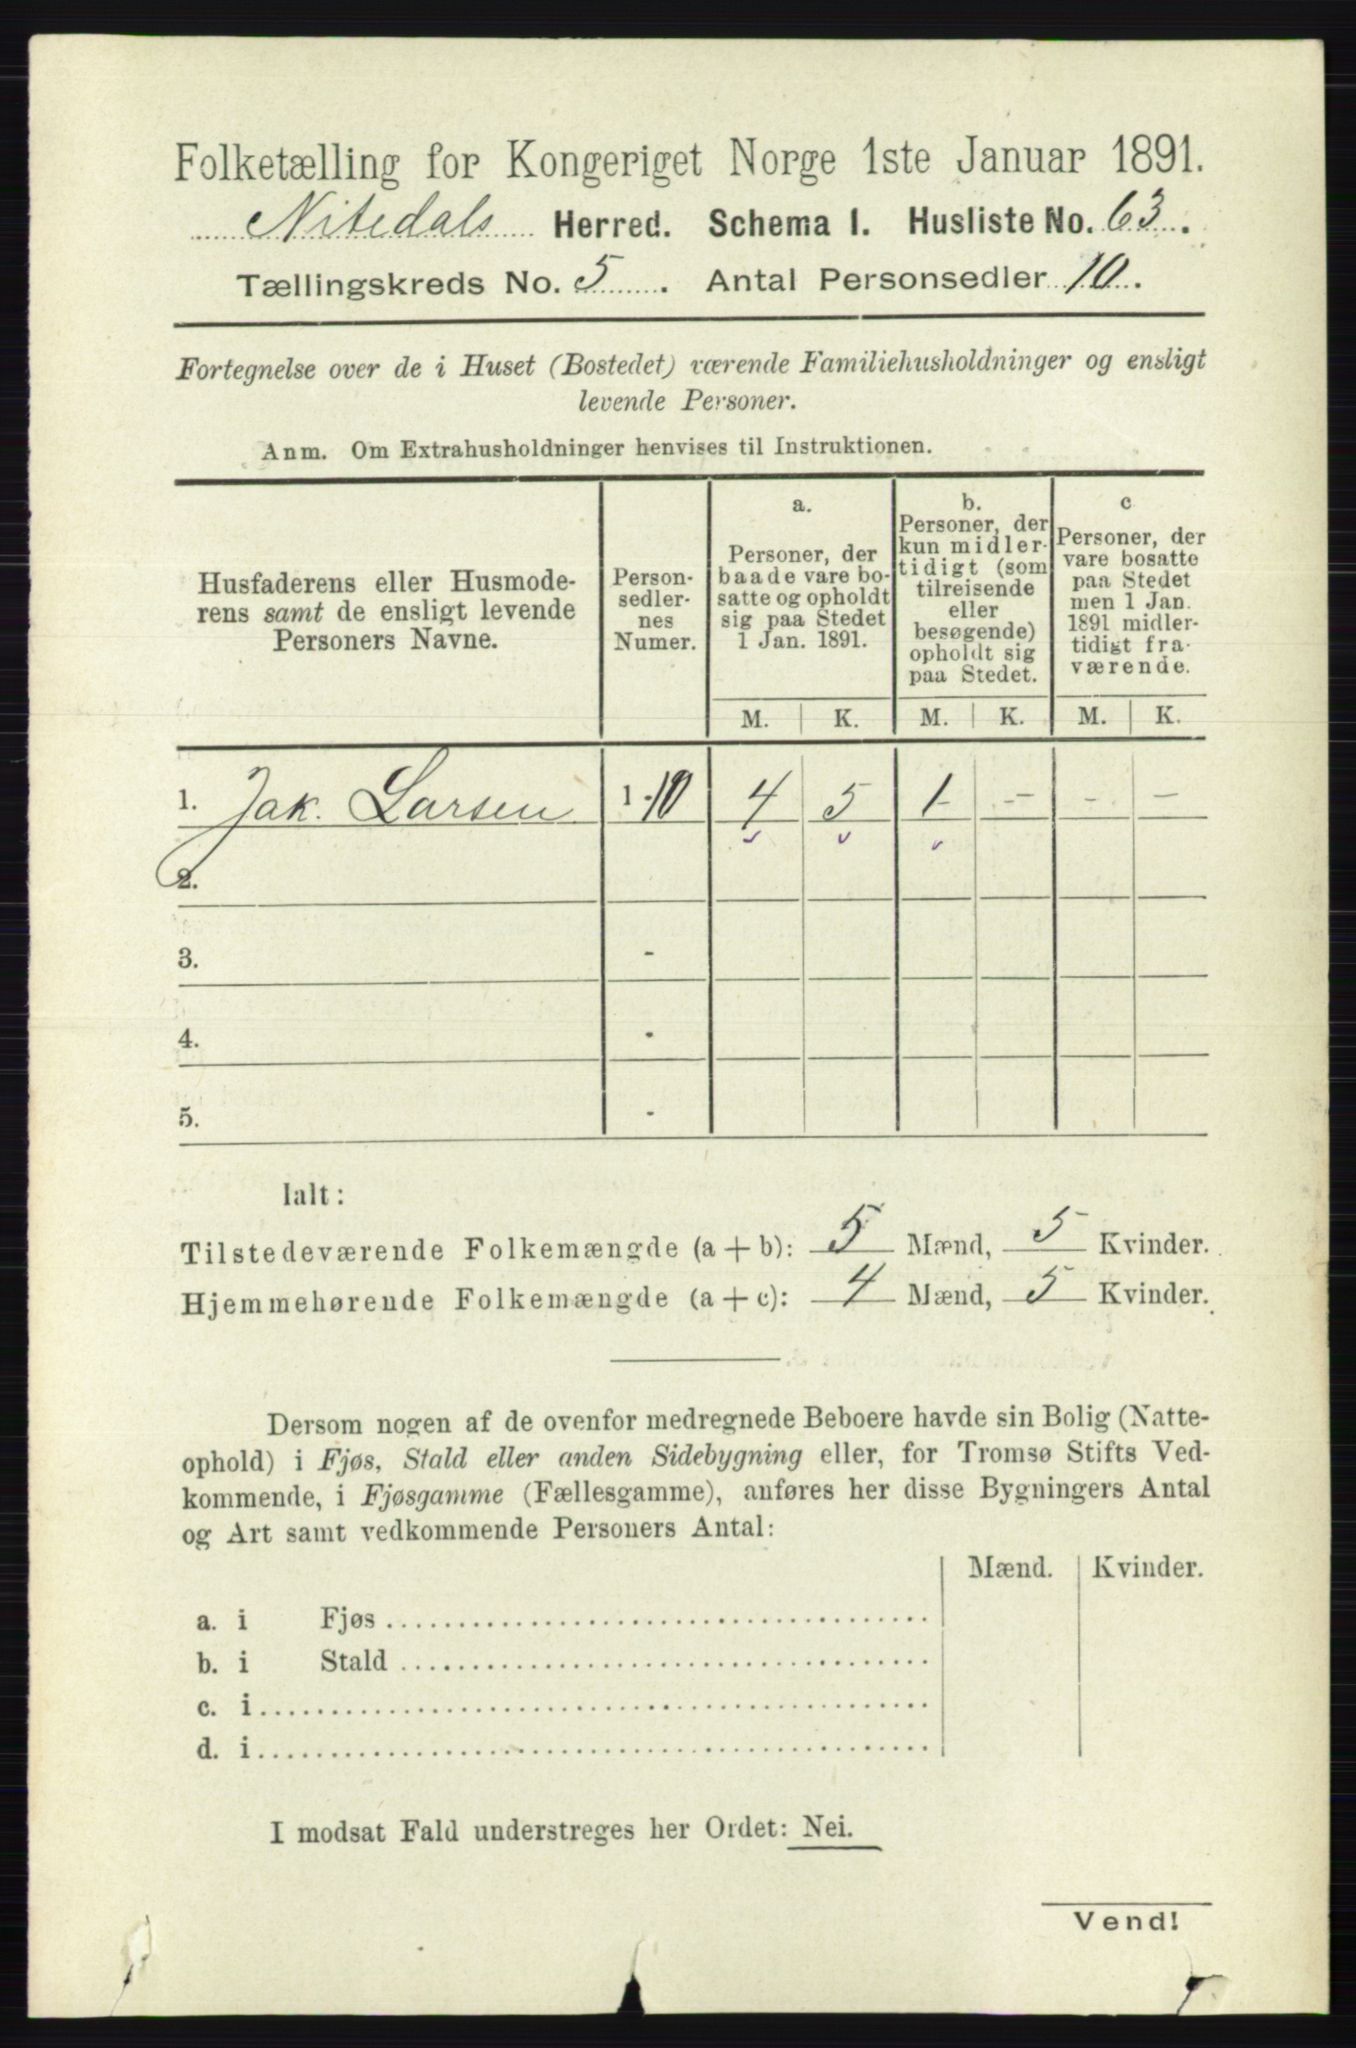 Folketælling for Kongeriget Norge 1ste Januar 1891.
Nitedals Herred. Schema I. Husliste No. 63.
Tællingskreds No. 5. Antal Personsedler 10.
Fortegnelse over de i Huset (Bostedet) værende Familiehusholdninger og ensligt
levende Personer.
Anm. Om Extrahusholdninger henvises til Instruktionen.
Husfaderens eller Husmode-
rens samt de ensligt levende
Personers Navne.
Person-
sedler-
nes
Numer.
a.
Personer, der
baade vare bo-
satte og opholdt
sig paa Stedet
1 Jan. 1891.
b.
Personer, der
kun midler-
tidigt (som
tilreisende
eller
besøgende)
opholdt sig
paa Stedet.
c
Personer, der
vare bosatte
paa Stedet
men 1 Jan.
1891 midler-
tidigt fra-
værende.
M. K. M. K. M. K.
1. Jak. Larsen 1-10 4 5 1 - - -
2.
3. -
4. -
5. -
Ialt:
Tilstedeværende Folkemængde (a + b): 5 Mænd, 5 Kvinder.
Hjemmehørende Folkemængde (a + c): 4 Mænd, 5 Kvinder.
Dersom nogen af de ovenfor medregnede Beboere havde sin Bolig (Natte-
ophold) i Fjøs, Stald eller anden Sidebygning eller, for Tromsø Stifts Ved-
kommende, i Fjøsgamme (Fællesgamme), anføres her disse Bygningers Antal
og Art samt vedkommende Personers Antal:
Mænd. Kvinder.
a. i Fjøs
b. i Stald
c. i
d. i
I modsat Fald understreges her Ordet: Nei.
Vend!